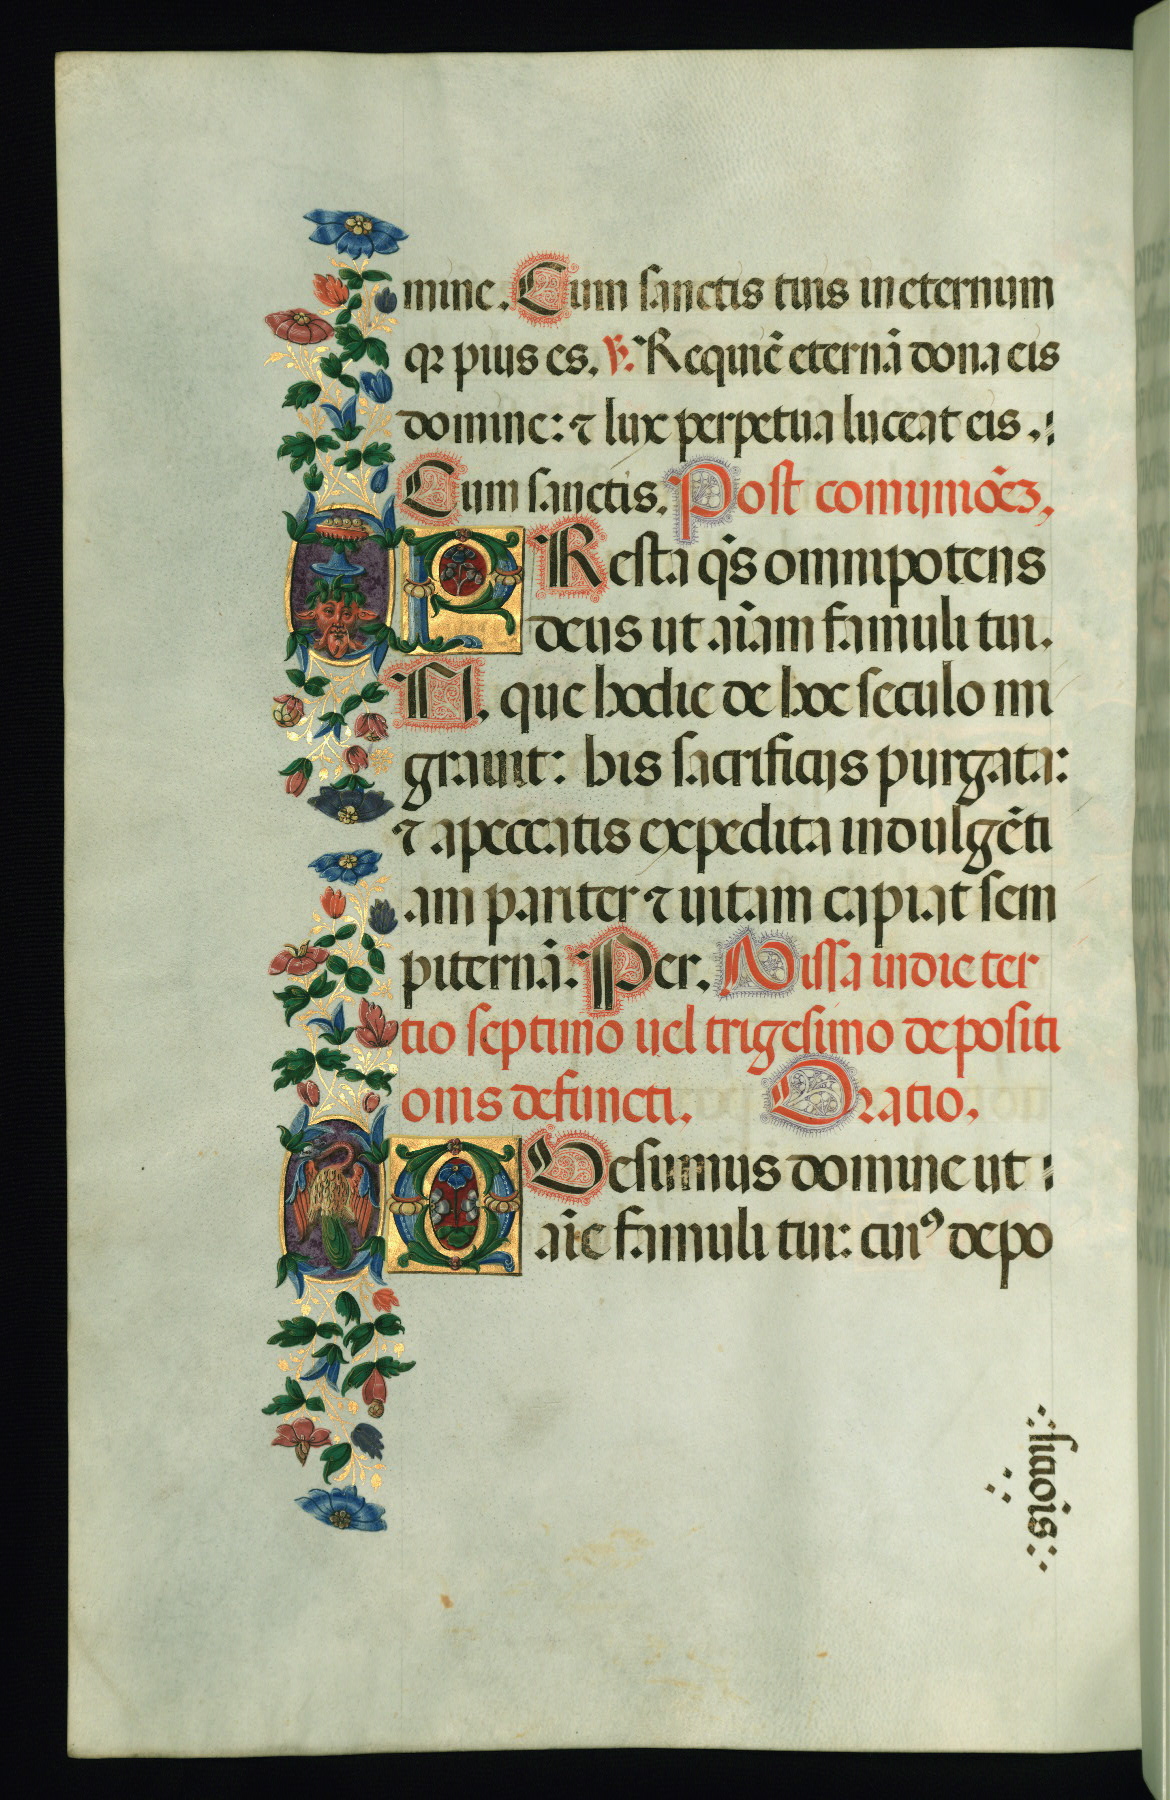 mine. Cum sanctis tuis in eternum
qꝛ pius es. ℣. Requiē eternā dona eis
domine: ⁊ lux perpetua luceat eis.
Cum sanctis. Post comunioēꝫ.
PResta qs̄ omnipotens
deus ut aīam famuli tui.
N. que hodie de hoc seculo mi
grauit: his sacrificijs purgata:
⁊ a peccatis expedita indulgēti
am pariter ⁊ uitam capiat sem
piternā: Per. Missa in die ter
tio septimo uel trigesimo depositi
onis defuncti. Oratio.
QUesumus domine ut
aīe famuli tui: cuiꝰ depo
sitiois